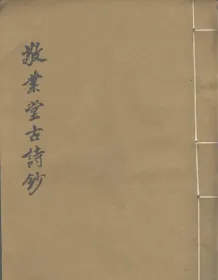 敬業堂古詩鈔